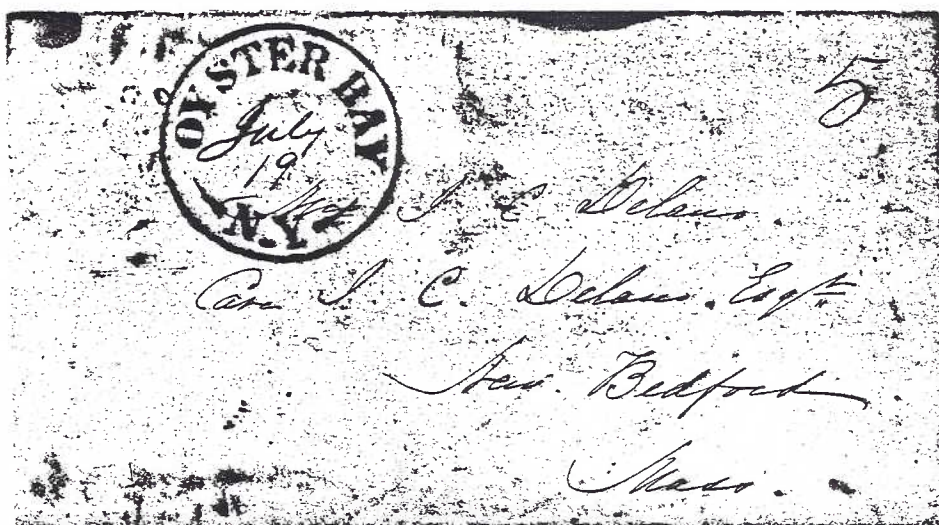 OYSTER BAY
July
19
N.Y.
5
J C Delano.
Care J. C. Delano. Esqr.
New. Bedford
Mass.